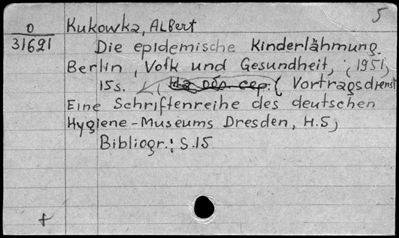 5
O
31691
Kukowka, Albert
Die epidemische Kinderlähmung.
Berlin, Volk und Gesundheit, (1951)
15s. (Vortragsdienst
Eine Schriftenreihe des deutschen
Hygiene-Museums Dresden, H.5)
Bibliogr.: S.15